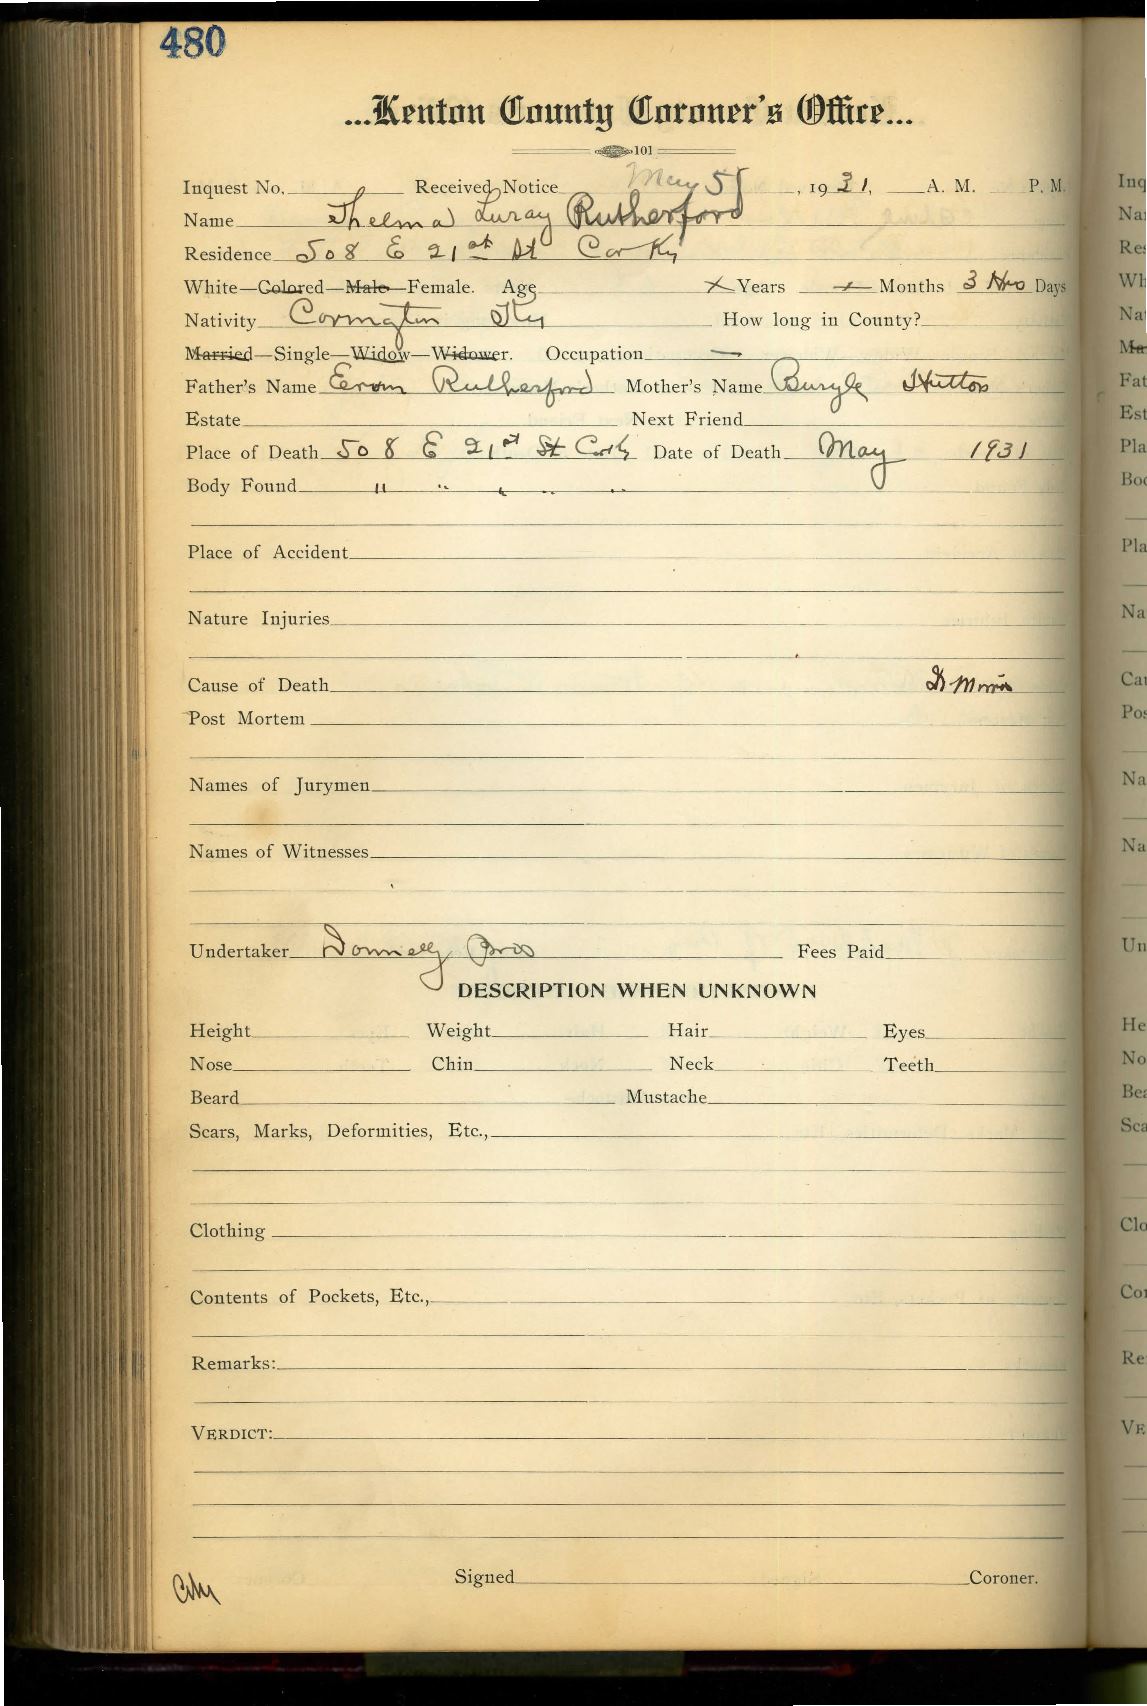 480
...Kenton County Coroner's Office...
101
Inquest No. Received Notice May 5, 1931, A. M. P. M.
Name Thelma Luray Rutherford
Residence 508 E 21st St Cov Ky
White—Colored—Male—Female. Age x Years Months 3 Hrs Days
Nativity Covington Ky How long in County?
Married—Single—Widow—Widower. Occupation —
Father's Name Rutherford Mother's Name Hutton
Estate Next Friend
Place of Death 508 E 21st St Date of Death May 1931
Body Found " " " " "
Place of Accident
Nature Injuries
Cause of Death Dr Morris
Post Mortem
Names of Jurymen
Names of Witnesses
Undertaker Donnelly Bros Fees Paid
DESCRIPTION WHEN UNKNOWN
Height Weight Hair Eyes
Nose Chin Neck Teeth
Beard Mustache
Scars, Marks, Deformities, Etc.,
Clothing
Contents of Pockets, Etc.,
Remarks:
VERDICT:
Signed Coroner.